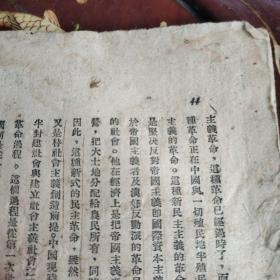 44
主義革命，這種革命已經過時了，而
種革命正在中國與一切殖民地半殖民
主義的革命。這種新民主主義的革命
是堅決反對帝國主義即國際資本主義
於帝國主義者及漢奸反動派的革命
的社會。他在經濟上是把帝國
營，把大土地分配給農民所有，同
因此，這種新式的民主革命，雖然
又是替社會主義創造前提。中國現
半封建社會與建立社會主義社會之
革命過程。這個過程是從第一次